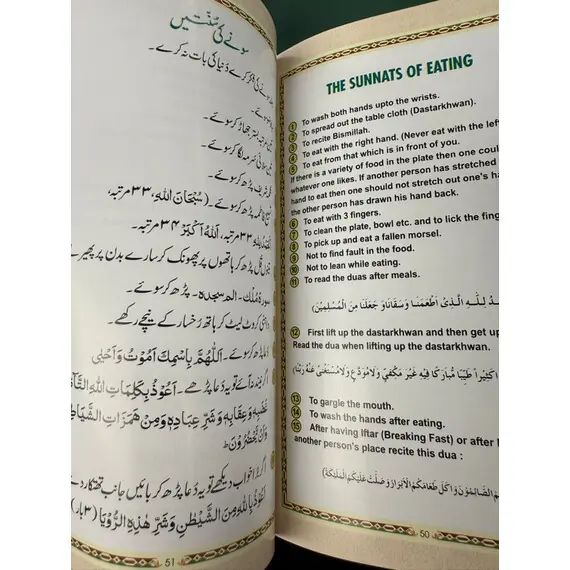 سونے کی سنّتیں
کی فکر کرے دُنیا کی بات نہ کرے۔
کر سوئے۔
بستر جھاڑ کر سوئے۔
سُرمہ لگا کر سوئے۔
پڑھ کر سوئے۔
پڑھ کر سوئے۔ (سُبْحَانَ اللهِ ۳۳ مرتبہ،
۳۳ مرتبہ، اَللهُ اَكْبَرْ ۳۴ مرتبہ۔
پڑھ کر ہاتھوں پر پھونک کر سارے بدن پر پھیرے
سورہ مُلک ۔ الم سجدہ ۔ پڑھ کر سوئے۔
داہنی کروٹ لیٹ کر ہاتھ رُخسار کے نیچے رکھے۔
دُعا پڑھ کر سوئے۔ اَللّٰهُمَّ بِاسْمِكَ اَمُوْتُ وَاَحْيٰى
تو یہ دُعا پڑھے۔ اَعُوْذُ بِكَلِمَاتِ اللهِ التَّآ
غَضَبِهٖ وَعِقَابِهٖ وَشَرِّ عِبَادِهٖ وَمِنْ هَمَزَاتِ الشَّيَاطِ
وَاَنْ يَّحْضُرُوْنَ
خواب دیکھے تو یہ دُعا پڑھ کر بائیں جانب تھتکار دے
اَعُوْذُ بِاللهِ مِنَ الشَّيْطٰنِ وَشَرِّ هٰذِهِ الرُّؤْيَا (۳ بار)
51
THE SUNNATS OF EATING
1 To wash both hands upto the wrists.
2 To spread out the table cloth (Dastarkhwan).
3 To recite Bismillah.
4 To eat with the right hand. (Never eat with the left
5 To eat from that which is in front of you.
If there is a variety of food in the plate then one coul
whatever one likes. If another person has stretched
hand to eat then one should not stretch out one's ha
the other person has drawn his hand back.
6 To eat with 3 fingers.
7 To clean the plate, bowl etc. and to lick the fing
8 To pick up and eat a fallen morsel.
9 Not to find fault in the food.
10 Not to lean while eating.
11 To read the duas after meals.
ـدُ لِلّٰهِ الَّذِىْ اَطْعَمَنَا وَسَقَانَا وَ جَعَلَنَا مِنَ الْمُسْلِمِيْنَ
12 First lift up the dastarkhwan and then get up
Read the dua when lifting up the dastarkhwan.
اكَثِيْرًا طَيِّبًا مُّبَارَكًا فِيْهِ غَيْرَ مَكْفِيٍّ وَلَا مُوَدَّعٍ وَلَا مُسْتَغْنًى عَنْهُ رَبَّنَا
13 To gargle the mouth.
14 To wash the hands after eating.
15 After having Iftar (Breaking Fast) or after
another person's place recite this dua :
ـمُ الصَّائِمُوْنَ وَاَكَلَ طَعَامَكُمُ الْاَبْرَارُ وَصَلَّتْ عَلَيْكُمُ الْمَلٰئِكَةُ
50